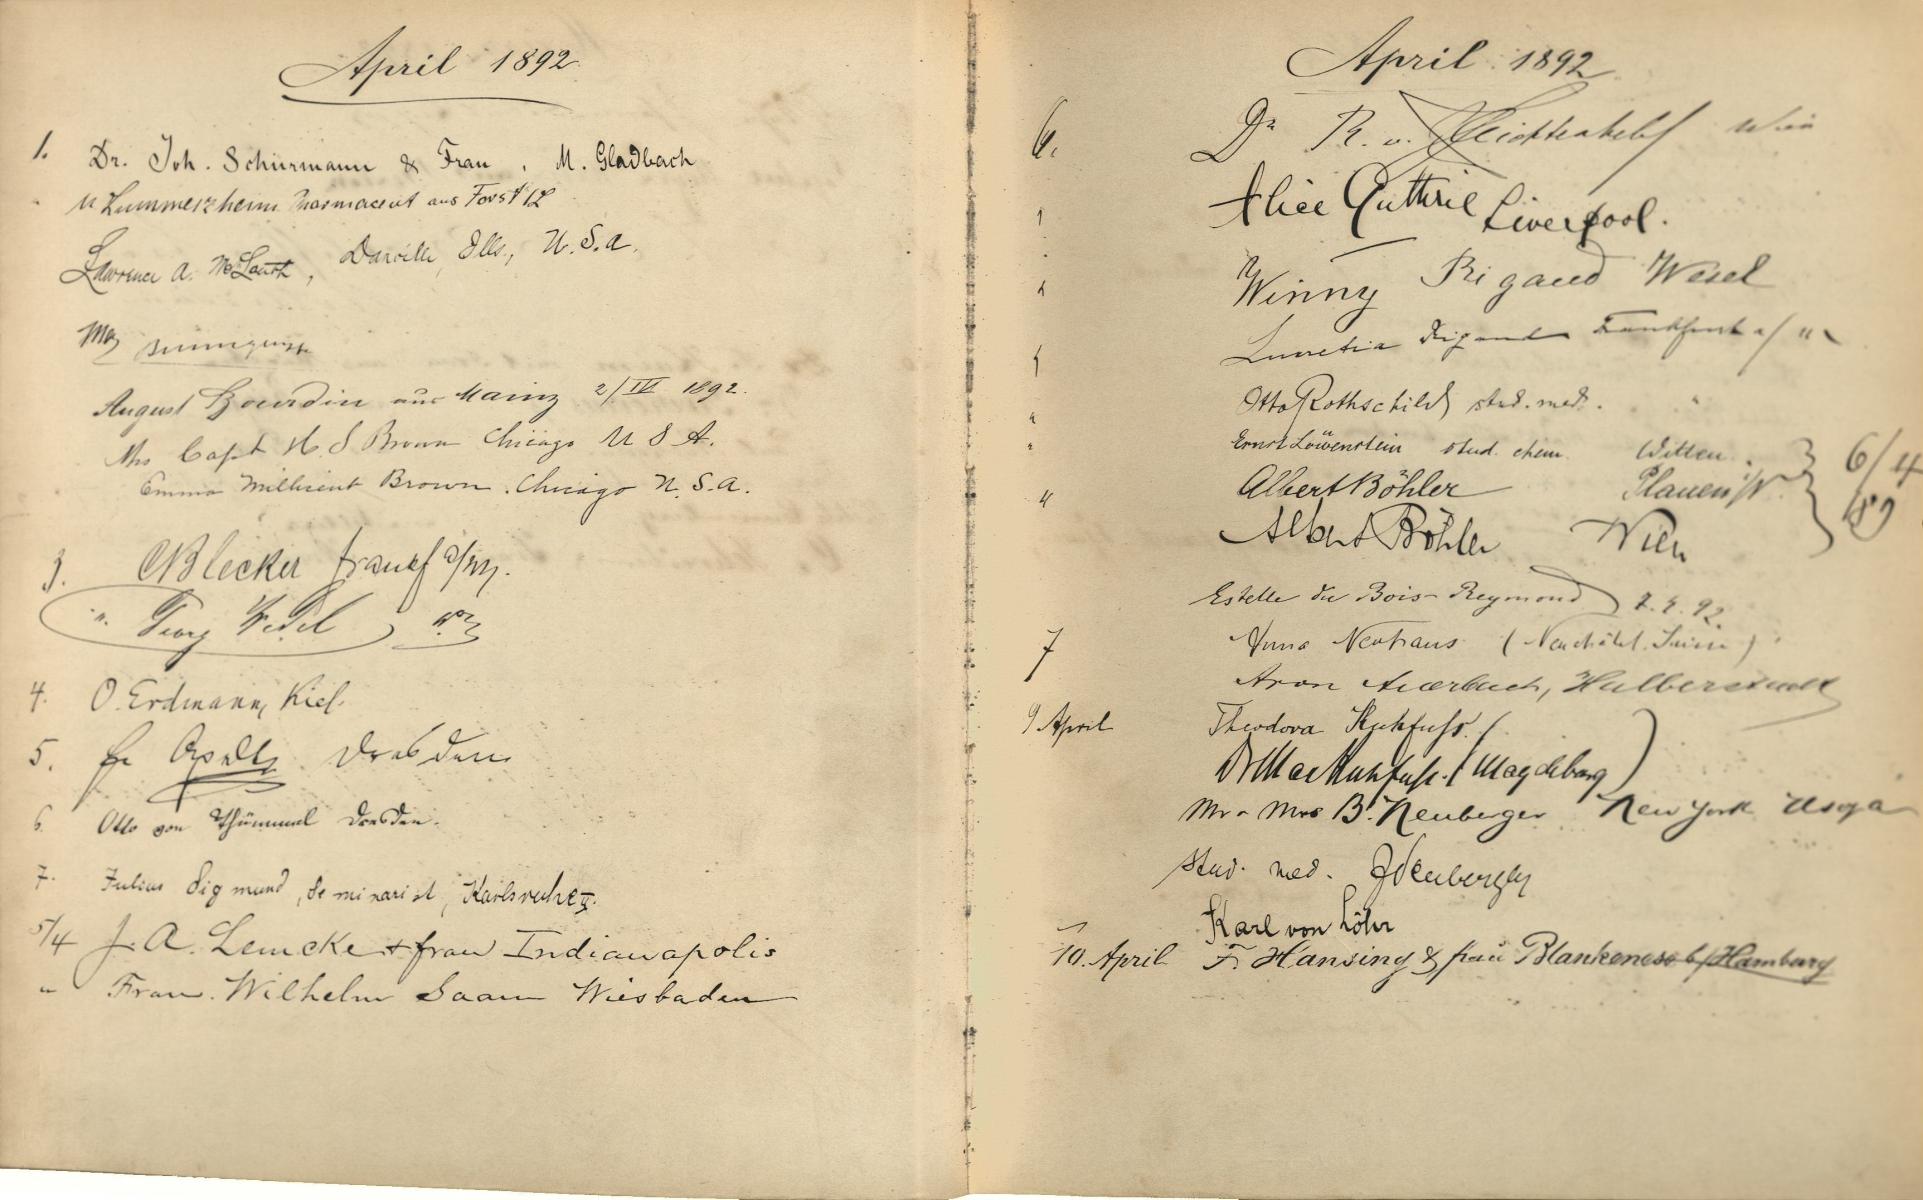 April 1892
1. Dr. Joh. Schürmann & Frau, M. Gladbach
Lummerzheim Pharmaceut aus Forst
Lawrence A. McLouth, Danville, Ills., U.S.A.
Max
August Gourdin aus Mainz 2/IV 1892.
Mrs Capt H. S Brown Chicago U S A.
Emma Millicent Brown. Chicago U.S.A.
3. Blecker Frankf a/M.
" Georg Wedel
4. O. Erdmann, Kiel.
5. Dresden
6. Otto von Thümmel Dresden.
7. Julius Sigmund, Seminarist, Karlsruhe II.
5/4 J. A. Lemcke & frau Indianapolis
" Frau. Wilhelm Saam Wiesbaden
April 1892
6. Dr R. v. Wien
Alice Guthrie Liverpool.
Winny Rigaud Wesel
Lucretia Rigaud Frankfurt a/M
Otto Rothschild stud. med. "
Ernst Löwenstein stud. chem. Witten. 6/4
Albert Böhler Plauen i/V.
Albert Böhler Wien
Estelle du Bois-Reymond 7.4.92.
7 Anna Neuhaus (Neuchâtel. Suisse)
Aron Auerbach, Halberstadt
9 April Theodora Kuhfuss.
Dr Max Kuhfuss. Magdeburg
Mr & Mrs B. Neuberger New York
stud. med.
Karl von Löhr
10. April F. Hansing & frau Blankenese b/Hamburg